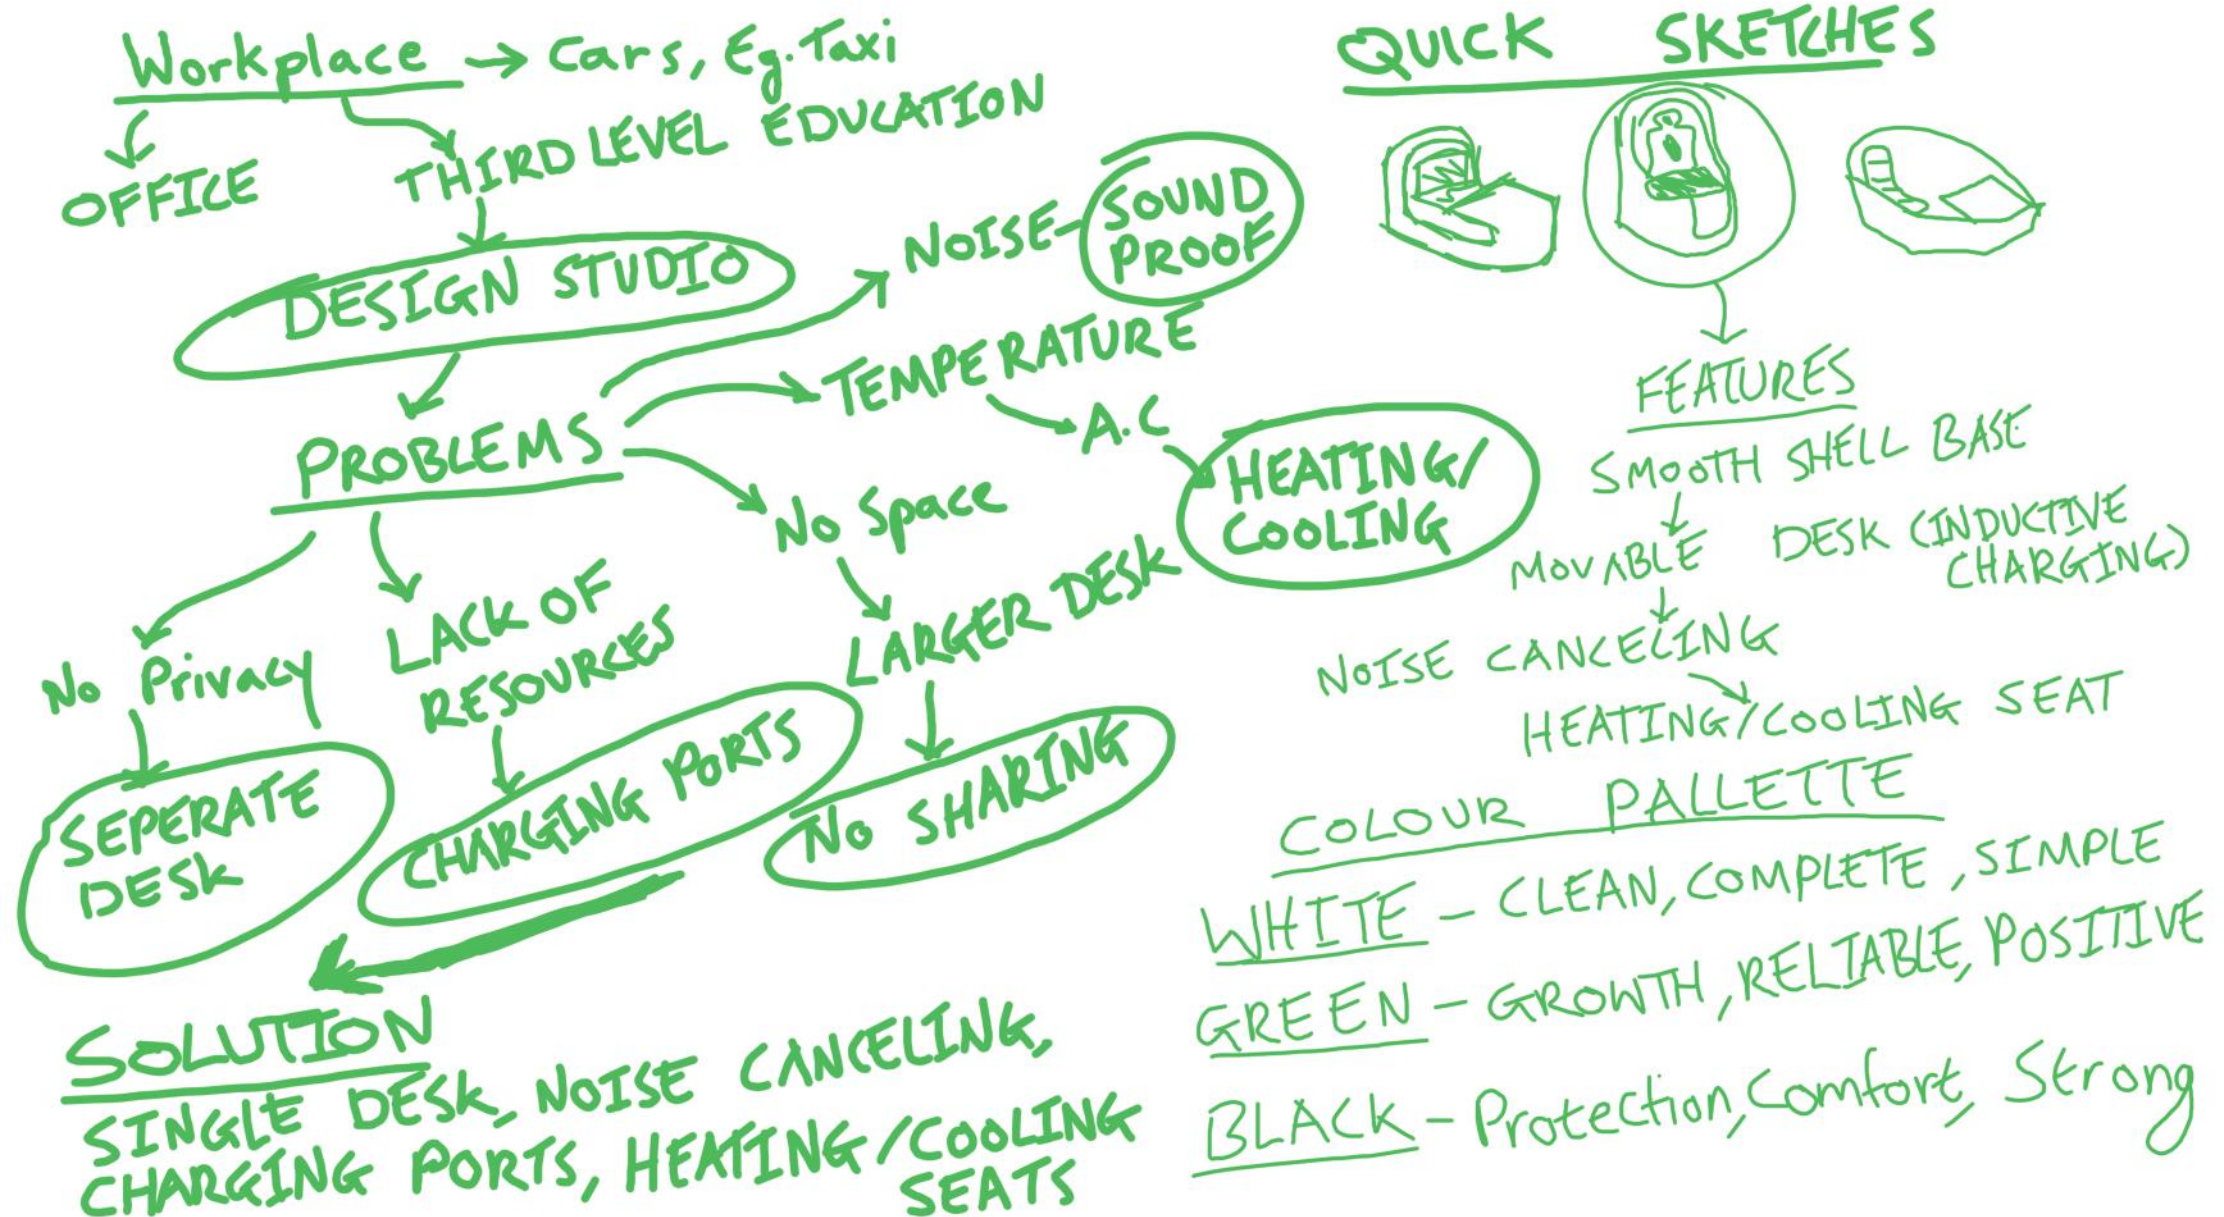 Workplace → Cars, Eg. Taxi
OFFICE
THIRD LEVEL EDUCATION
DESIGN STUDIO
PROBLEMS
NOISE - SOUND
PROOF
TEMPERATURE
A.C
HEATING/
COOLING
No Space
LARGER DESK
NO SHARING
LACK OF
RESOURCES
CHARGING PORTS
No Privacy
SEPERATE
DESK
SOLUTION
SINGLE DESK, NOISE CANCELING,
CHARGING PORTS, HEATING/COOLING
SEATS
QUICK SKETCHES
FEATURES
SMOOTH SHELL BASE
MOVABLE DESK (INDUCTIVE
CHARGING)
NOISE CANCELING
HEATING/COOLING SEAT
COLOUR PALLETTE
WHITE - CLEAN, COMPLETE, SIMPLE
GREEN - GROWTH, RELIABLE, POSITIVE
BLACK - Protection, Comfort, Strong